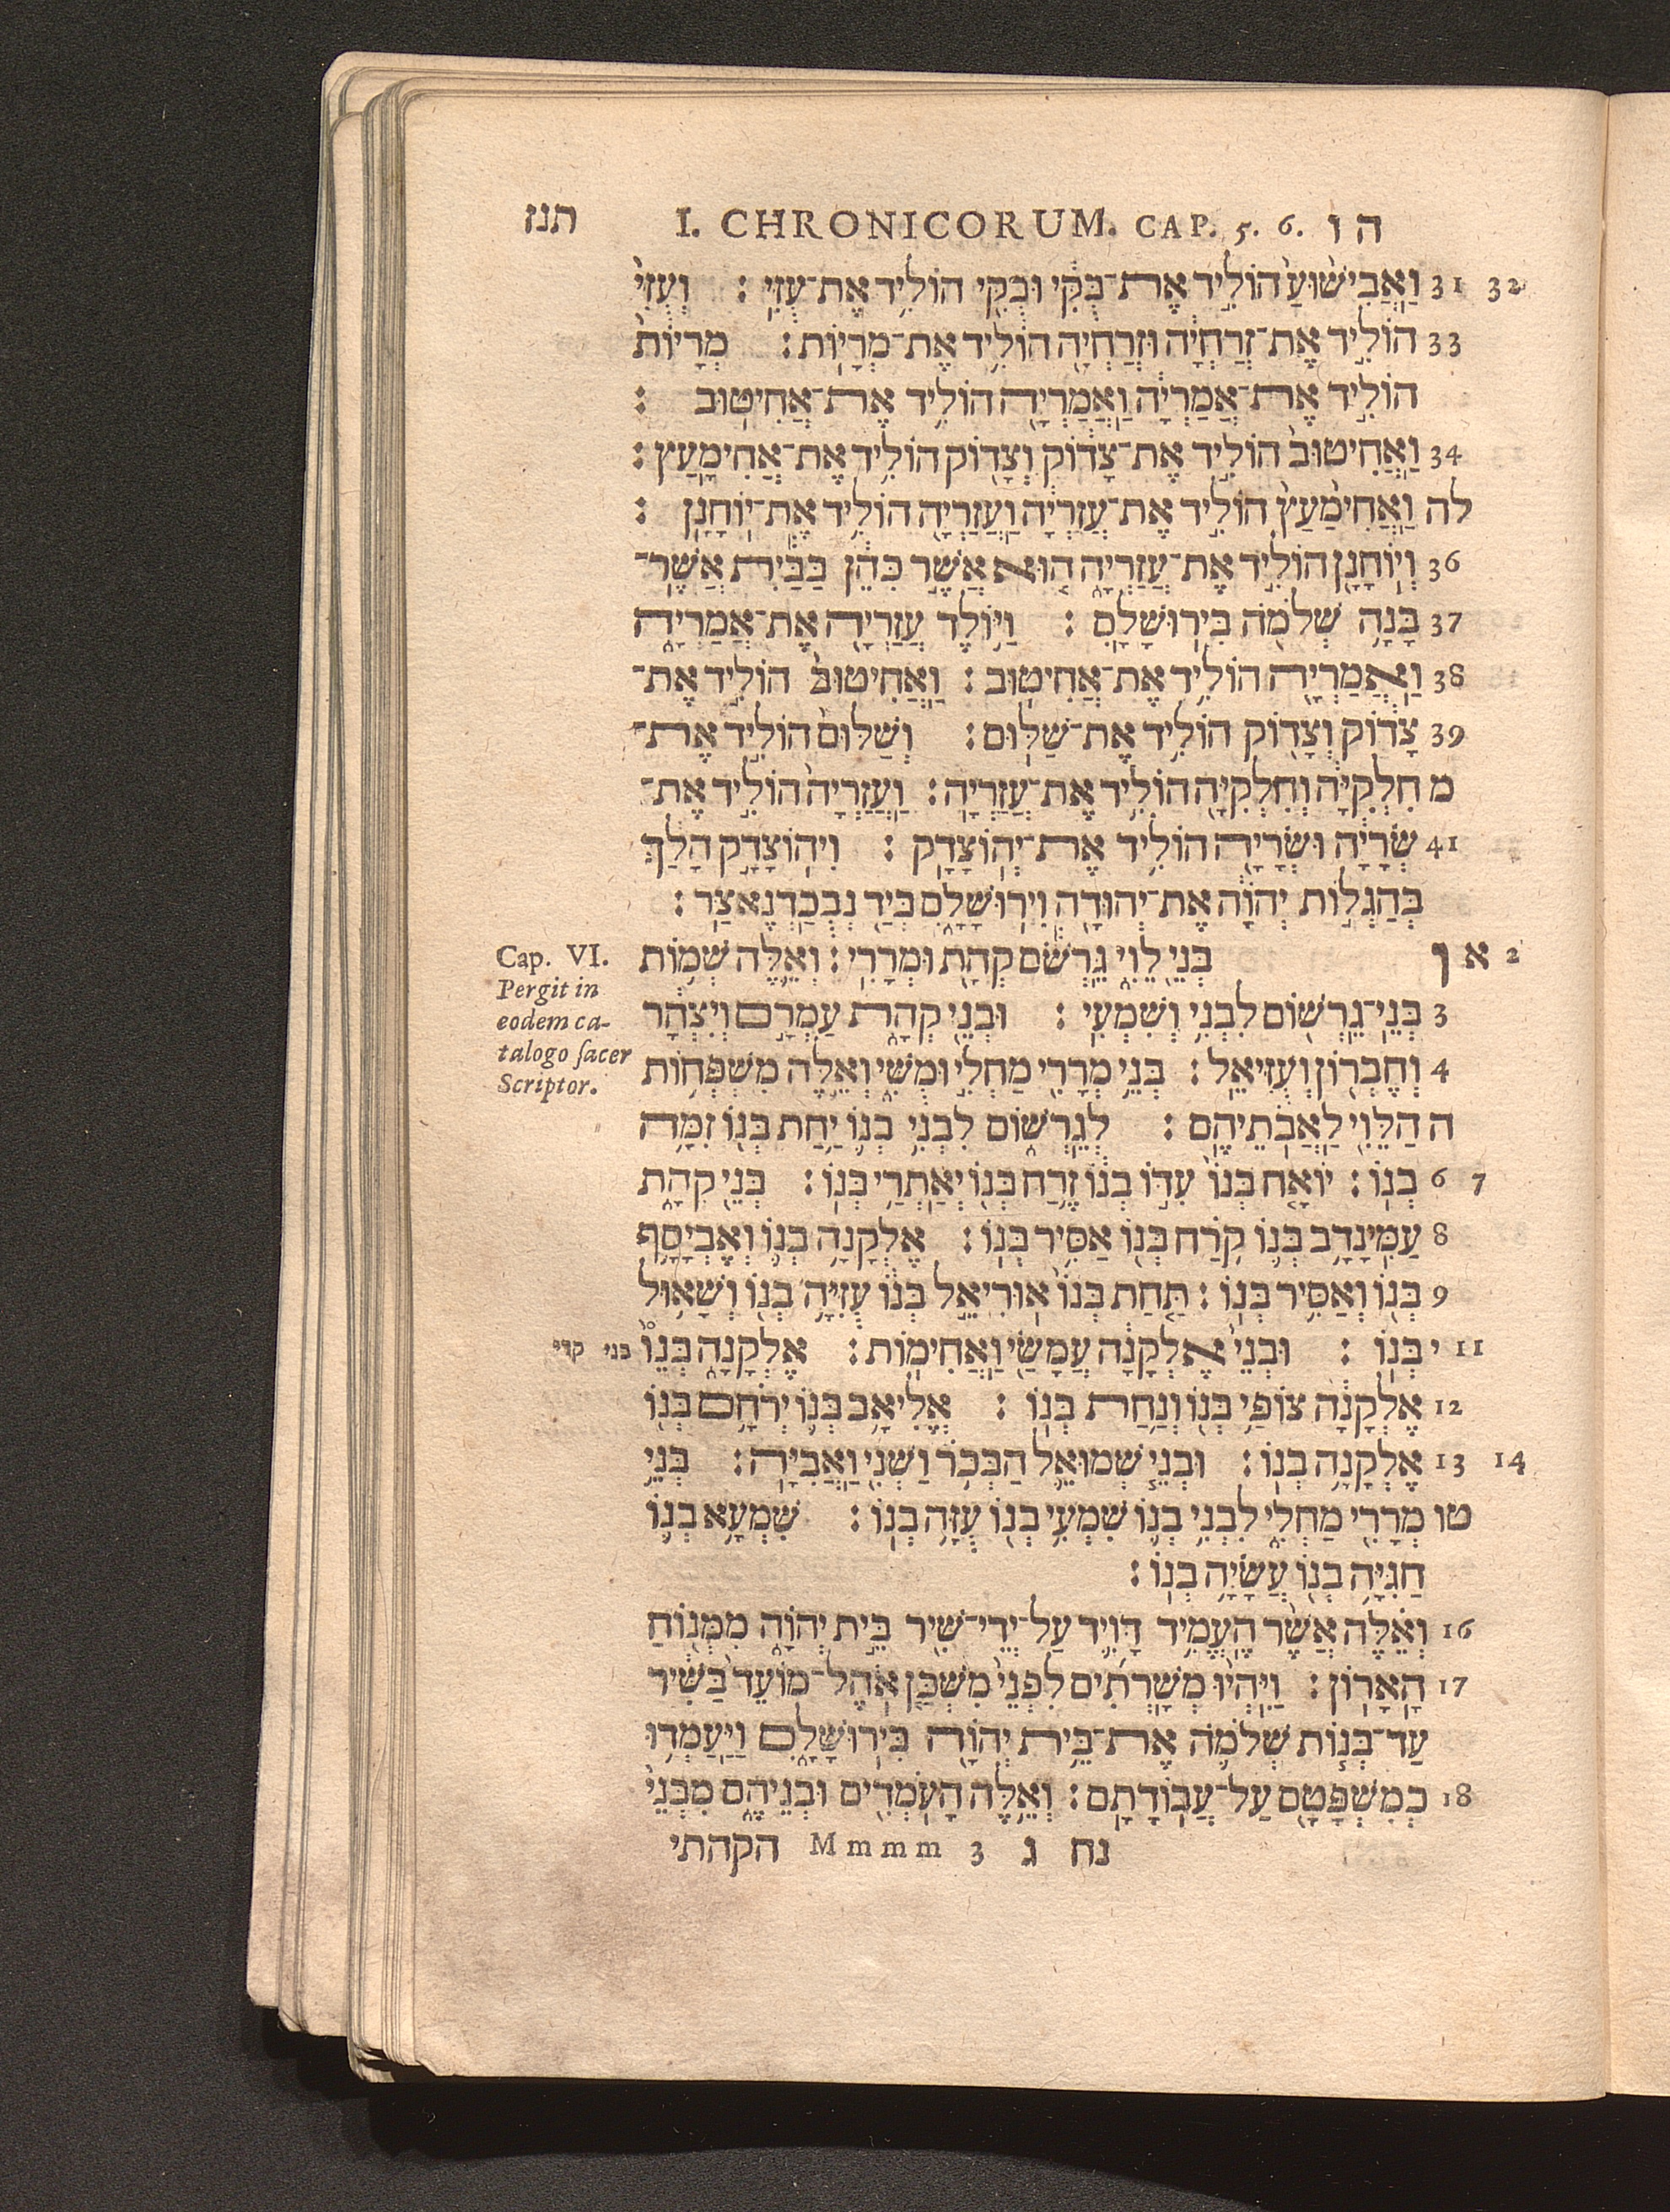 תנז I. CHRONICORUM. CAP. 5. 6. ה ו
31 32 וַאֲבִישׁוּעַ הוֹלִיד אֶת־בֻּקִּי וּבֻקִּי הוֹלִיד אֶת־עֻזִּי׃ וְעֻזִּי
33 הוֹלִיד אֶת־זְרַחְיָה וּזְרַחְיָה הוֹלִיד אֶת־מְרָיוֹת׃ מְרָיוֹת
הוֹלִיד אֶת־אֲמַרְיָה וַאֲמַרְיָה הוֹלִיד אֶת־אֲחִיטוּב׃
34 וַאֲחִיטוּב הוֹלִיד אֶת־צָדוֹק וְצָדוֹק הוֹלִיד אֶת־אֲחִימָעַץ׃
לה וַאֲחִימַעַץ הוֹלִיד אֶת־עֲזַרְיָה וַעֲזַרְיָה הוֹלִיד אֶת־יוֹחָנָן׃
36 וְיוֹחָנָן הוֹלִיד אֶת־עֲזַרְיָה הוּא אֲשֶׁר כִּהֵן בַּבַּיִת אֲשֶׁר־
37 בָּנָה שְׁלֹמֹה בִּירוּשָׁלִָם׃ וַיּוֹלֶד עֲזַרְיָה אֶת־אֲמַרְיָה
38 וַאֲמַרְיָה הוֹלִיד אֶת־אֲחִיטוּב׃ וַאֲחִיטוּב הוֹלִיד אֶת־
39 צָדוֹק וְצָדוֹק הוֹלִיד אֶת־שַׁלּוּם׃ וְשַׁלּוּם הוֹלִיד אֶת־
מ חִלְקִיָּה וְחִלְקִיָּה הוֹלִיד אֶת־עֲזַרְיָה׃ וַעֲזַרְיָה הוֹלִיד אֶת־
41 שְׂרָיָה וּשְׂרָיָה הוֹלִיד אֶת־יְהוֹצָדָק׃ וִיהוֹצָדָק הָלַךְ
בְּהַגְלוֹת יְהוָֹה אֶת־יְהוּדָה וִירוּשָׁלִָם בְּיַד נְבֻכַדְנֶאצַּר׃
Cap. VI.
Pergit in
eodem ca-
talogo sacer
Scriptor.
2 א ו בְּנֵי לֵוִי גֵּרְשֹׁם קְהָת וּמְרָרִי׃ וְאֵלֶּה שְׁמוֹת
3 בְּנֵי־גֵרְשׁוֹם לִבְנִי וְשִׁמְעִי׃ וּבְנֵי קְהָת עַמְרָם וְיִצְהָר
4 וְחֶבְרוֹן וְעֻזִּיאֵל׃ בְּנֵי מְרָרִי מַחְלִי וּמֻשִׁי וְאֵלֶּה מִשְׁפְּחוֹת
ה הַלֵּוִי לַאֲבֹתֵיהֶם׃ לְגֵרְשׁוֹם לִבְנִי בְנוֹ יַחַת בְּנוֹ זִמָּה
6 7 בְנוֹ׃ יוֹאָח בְּנוֹ עִדּוֹ בְנוֹ זֶרַח בְּנוֹ יְאַתְרַי בְּנוֹ׃ בְּנֵי קְהָת
8 עַמִּינָדָב בְּנוֹ קֹרַח בְּנוֹ אַסִּיר בְּנוֹ׃ אֶלְקָנָה בְנוֹ וְאֶבְיָסָף
9 בְּנוֹ וְאַסִּיר בְּנוֹ׃ תַּחַת בְּנוֹ אוּרִיאֵל בְּנוֹ עֻזִּיָּה בְנוֹ וְשָׁאוּל
י 11 בְּנוֹ׃ וּבְנֵי אֶלְקָנָה עֲמָשַׂי וַאֲחִימוֹת׃ אֶלְקָנָה בְּנֵו בני קרי
12 אֶלְקָנָה צוֹפַי בְּנוֹ וְנַחַת בְּנוֹ׃ אֱלִיאָב בְּנוֹ יְרֹחָם בְּנוֹ
13 14 אֶלְקָנָה בְנוֹ׃ וּבְנֵי שְׁמוּאֵל הַבְּכֹר וַשְׁנִי וַאֲבִיָּה׃ בְּנֵי
טו מְרָרִי מַחְלִי לִבְנִי בְנוֹ שִׁמְעִי בְנוֹ עֻזָּה בְנוֹ׃ שִׁמְעָא בְנוֹ
חַגִּיָּה בְנוֹ עֲשָׂיָה בְנוֹ׃
16 וְאֵלֶּה אֲשֶׁר הֶעֱמִיד דָּוִיד עַל־יְדֵי־שִׁיר בֵּית יְהוָֹה מִמְּנוֹחַ
17 הָאָרוֹן׃ וַיִּהְיוּ מְשָׁרְתִים לִפְנֵי מִשְׁכַּן אֹהֶל־מוֹעֵד בַּשִּׁיר
עַד־בְּנוֹת שְׁלֹמֹה אֶת־בֵּית יְהוָֹה בִּירוּשָׁלִָם וַיַּעַמְדוּ
18 כְמִשְׁפָּטָם עַל־עֲבוֹדָתָם׃ וְאֵלֶּה הָעֹמְדִים וּבְנֵיהֶם מִבְּנֵי
נח ג Mmmm 3 הקהתי